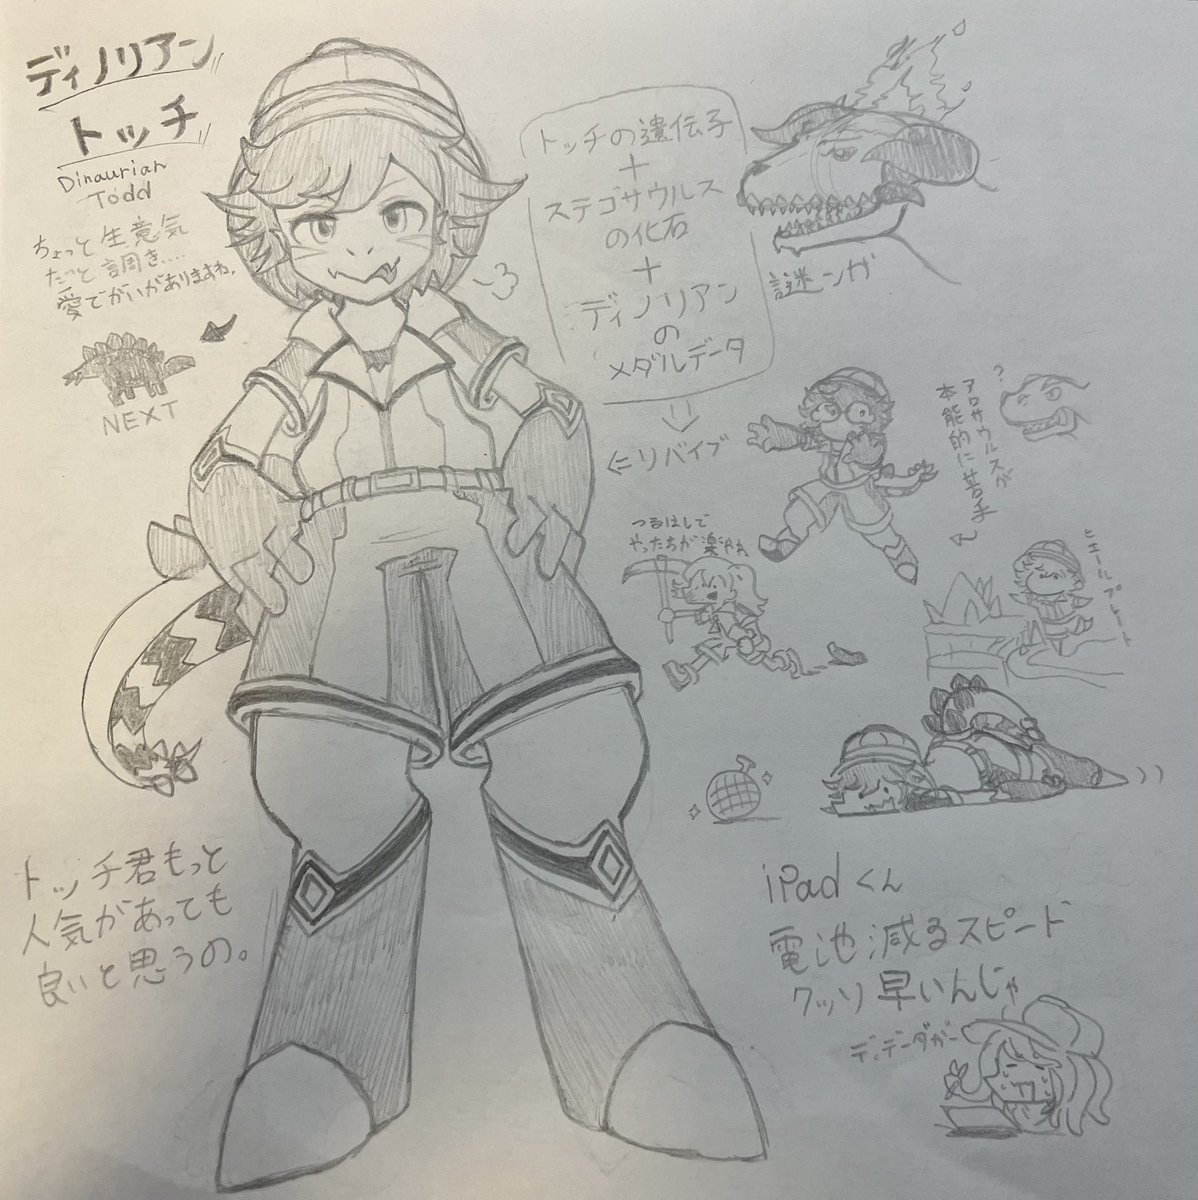 ディノリアン
トッチ
Dinaurian
Todd
ちょっと生意気
たっと言周き....
愛でがいがありますわ。
NEXT
トッチの遺伝子
+
ステゴサウルス
の化石
+
ディノリアン
の
メダルデータ
リバイブ
謎ンガ
?
アロサウルスが
本能的に苦手
つるはしで
やったちが楽やね
シェールプレート
トッチ君もっと
人気があっても
良いと思うの。
iPadくん
電池減るスピード
クッソ早いんじゃ
デ、データがー